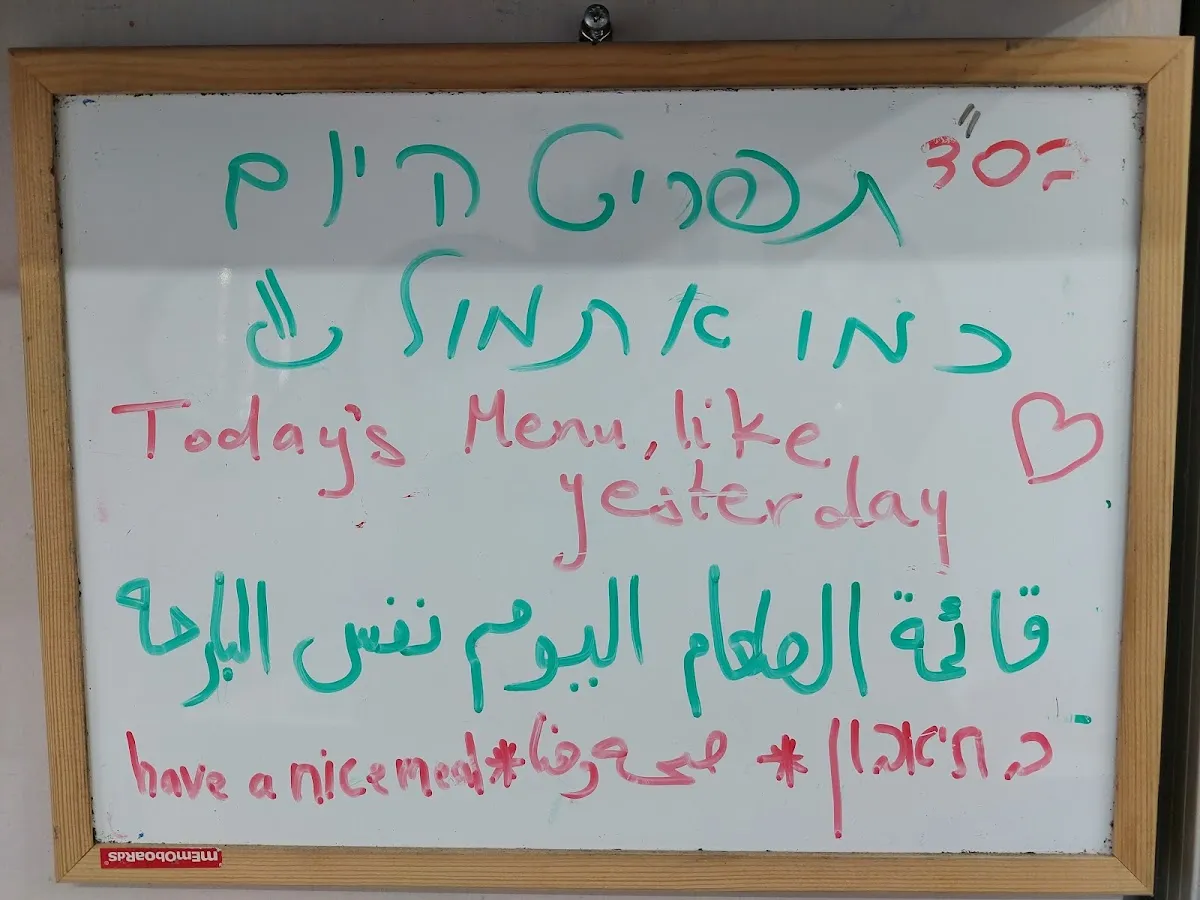 בס"ד
תפריט היום
כמו אתמול
Today's Menu, like
yesterday
قائمة الطعام اليوم نفس البارحه
בתיאבון * صحه وهنا * have a nice meal
MEMOBOARDS